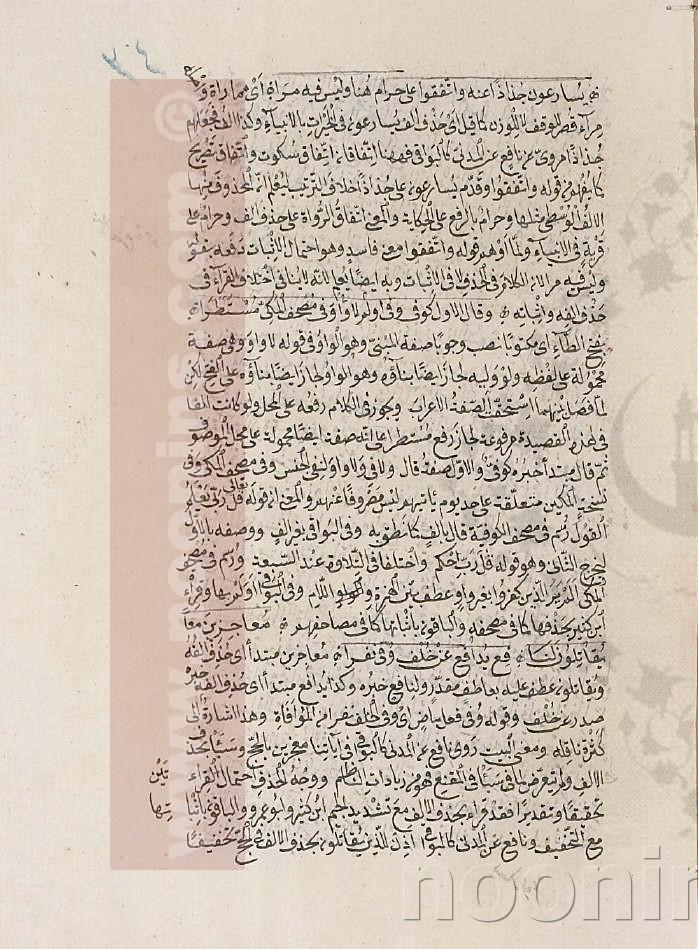 يسارعون جذاذا عنه واتفقوا على حرام هنا وليس فيه مراة اى مماراة و
مراء قصر للوقف لا للوزن كما قيل اى حذف الف يسارعون فى الخيرات بالانبياء وكذا الف فجعلهم
جذاذا مروى عن نافع عن المدنى كالبواقى فههنا اتفاقان اتفاق سكوت واتفاق تصريح
كما يفهم من قوله واتفقوا وقدم يسارعون على جذاذا خلاف الترتيب ليعلم ان المحذوف منها
الالف الوسطى مثلها وحرام بالرفع على الحكاية والمعنى اتفاق الرواة على حذف الف وحرام على
قرية فى الانبياء ولما اوهم قوله واتفقوا معنى فاسد وهو احتمال الاثبات دفعه بقوله
وليس فيه مرا لان الكلام فى الحذف لا فى الاثبات وبه ايضا يعلم انه لا ينافى اختلاف القراء فى
حذف الفه واثباته وقال الاول كوفى وفى اولم لا واو فى مصحف المكى مستطرا
بفتح الطاء اى مكتوبا نصب وجوبا صفة المبنى وهو الواو فى قوله لا واو وهى صفة
محمولة على لفظه ولو وليه لجاز ايضا بناؤه وهو الواو ولجاز ايضا بناؤه على الفتح لكن
لما فصل بينهما استحق الصفة الاعراب ويجوز فى الكلام رفعه على المحل ولو كانت القا
فى هذه القصيدة مرفوعة لجاز رفع مستطر على انه صفة ايضا محمولة على محل الموصوف
ثم قال مبتدأ خبره كوفى والاول صفة قال ولا فى ولا واو لنفى الجنس وفى مصحف المكى وفى
نسخة المكين متعلقة على حد يوم ياتيهم ليس مصروفا عنهم والمعنى ان قوله تعالى قل ربى يعلم
القول رسم فى مصحف الكوفية قال بالف كما نطق به وفى البواقى بغير الف ووصفه بالاول
ليخرج الثانى وهو قوله قل رب احكم واختلفا فى التلاوة عند السبعة ورسم فى مصحف
المكى الم ير الذين كفروا بغير واو عطف بين الهمزة واللام وفى البواقى اولم بها وقراء
ابن كثير بحذفها كما فى مصحفه والباقون باثباتها كما فى مصاحفهم معاجزين معا
يقاتلون نافع يدافع عن خلف وفى نفرا معاجزين مبتدأ اى حذف الفه
ويقاتلون عطف عليه بعاطف مقدر ولنافع خبره وكذا يدافع مبتدأ اى حذف الفه خبره
صدر عن خلف وقوله وفى فعل ماض اى وفى خلف نفرا من الموافاة وهذا اشارة الى
كثرة ناقله ومعنى البيت روى نافع عن المدنى كالبواقى فى آياتنا معجزين بالحج وسبأ بحذف
الالف ولم يتعرض لما فى سبأ فى المقنع فهو من زيادات الناظم ووجه الحذف احتمال القراءتين
تحقيقا وتقديرا فقد قراء بحذف الالف مع تشديد الجيم ابن كثير وابو عمرو والباقون باثباتها
مع التخفيف ونافع عن المدنى كالبواقى اذن للذين يقاتلون بحذف الالف فى الحج تخفيفا
www.noonins.com ©
noonin